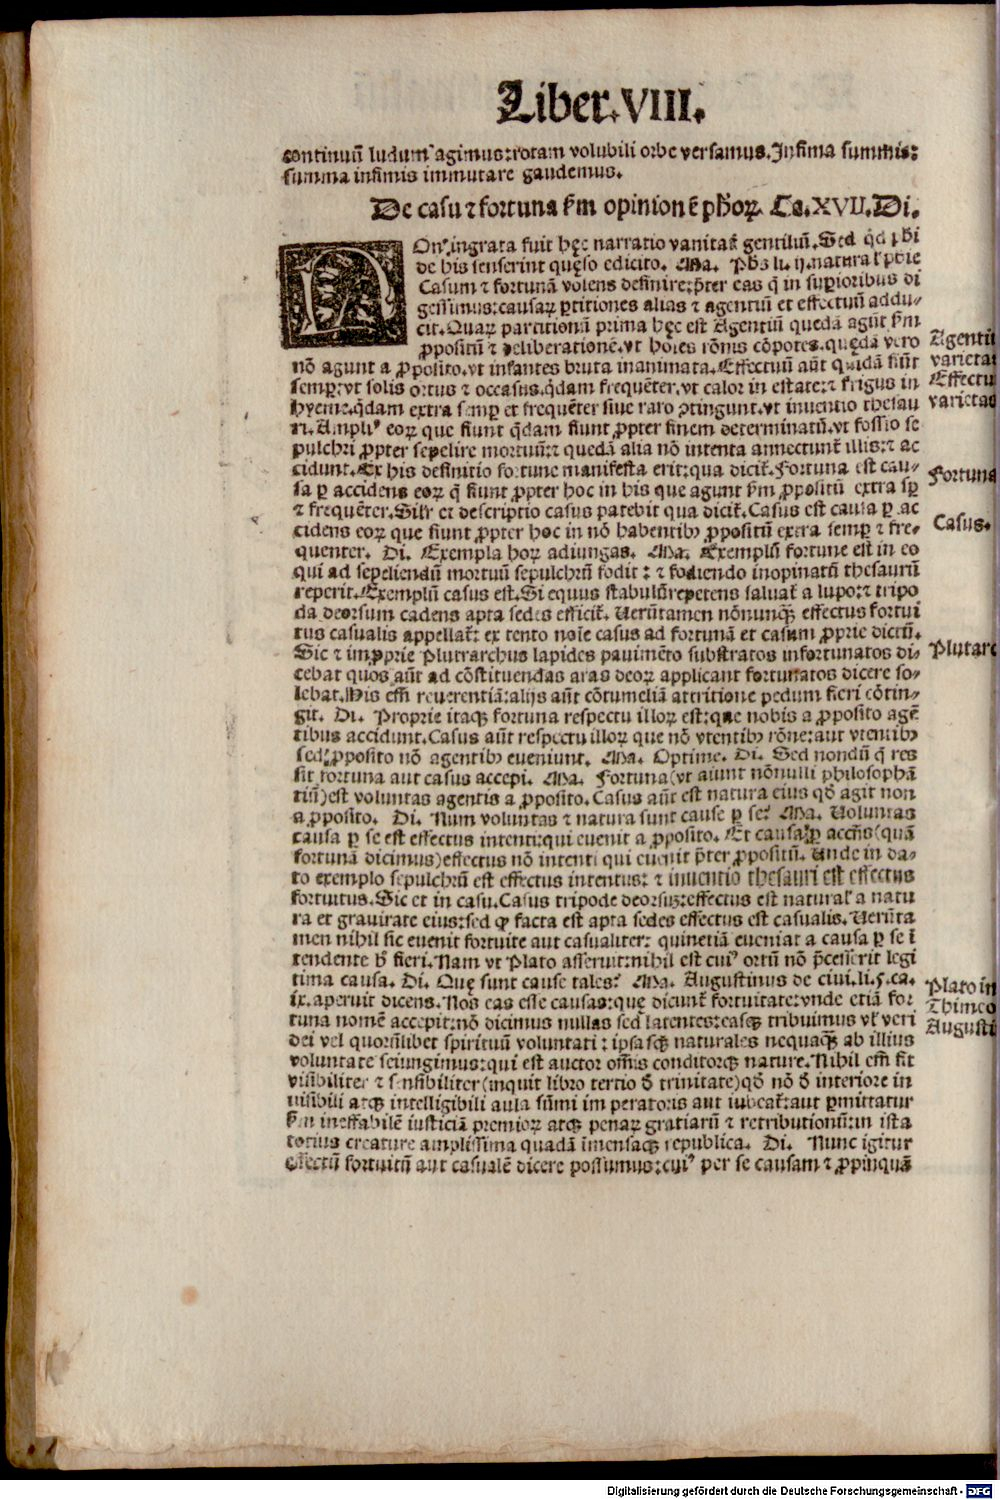 Liber.VIII.
continuũ ludum agimus:rotam volubili orbe versamus.Infima summis:
summa infimis immutare gaudemus.
De casu ⁊ fortuna ẜm opinionẽ pħoꝝ. Ca.XVII.Di.
NOnꝰ ingrata fuit hęc narratio vanitatꝭ gentiliũ.Sed qd phi
de his senserint quęso edicito. Ma. Phs li. ij.naturaƚ
Casum ⁊ fortunã volens definire:p̃ter eas q̃ in supioribus di
gessimus:causaꝝ ꝑtitiones alias ⁊ agentiũ et effectuũ addu⸗
cit.Quaꝝ partitionũ prima hęc est Agentiũ quedã agũt ẜm
ꝓpositũ ⁊ deliberationẽ.vt hoĩes rõnis cõpotes.quędã vero
nõ agunt a ꝓposito.vt infantes bruta inanimata.Effectuũ aũt quidã fiũt
semꝑ:vt solis ortus ⁊ occasus.q̃dam frequẽter.vt calor in estate:⁊ frigus in
hyeme.q̃dam extra semꝑ et frequẽter siue raro ꝯtingunt.vt inuentio thesau
ri.Ampliꝰ eoꝝ que fiunt q̃dam fiunt ꝓpter finem determinatũ.vt fossio se
pulchri ꝓpter sepelire mortuũ:⁊ quedã alia nõ intenta annectunt̃ illis:⁊ ac
cidunt.Ex his definitio fortune manifesta erit:qua dicit̃.Fortuna est cau⸗
sa ꝑ accidens eoꝝ q̃ fiunt ꝓpter hoc in his que agunt ẜm ꝓpositũ extra sꝑ
⁊ frequẽter.Silr et descriptio casus patebit qua dicit̃.Casus est causa ꝑ ac
cidens eoꝝ que fiunt ꝓpter hoc in nõ habentibꝫ ꝓpositũ extra semꝑ ⁊ fre⸗
quenter. Di. Exempla hoꝝ adiungas. Ma. Exemplũ fortune est in eo
qui ad sepeliendũ mortuũ sepulchrũ fodit : ⁊ fodiendo inopinatũ thesaurũ
reperit.Exemplũ casus est.Si equus stabulũ repetens saluat̃ a lupo:⁊ tripo
da deorsum cadens apta sedes efficit̃. Uerũtamen nõnunqꝫ effectus fortui
tus casualis appellat̃: extento noĩe casus ad fortunã et casum ꝓprie dictũ.
Sic ⁊ imꝓprie Plutrarchus lapides pauimẽto substratos infortunatos di⸗
cebat quos aũt ad cõstituendas aras deoꝝ applicant fortunatos dicere so⸗
lebat.His em̃ reuerentiã:alijs aũt cõtumeliã attritione pedum fieri cõtin⸗
git. Di. Proprie itaqꝫ fortuna respectu illoꝝ est:que nobis a ꝓposito agẽ
tibus accidunt.Casus aũt respectu illoꝝ que nõ vtentibꝫ rõne:aut vtentibꝫ
sedꝰ ꝓposito nõ agentibꝫ eueniunt. Ma. Optime. Di. Sed nondũ q̃ res
sit fortuna aut casus accepi. Ma. Fortuna(vt aiunt nõnulli philosophã
tiũ)est voluntas agentis a ꝓposito.Casus aũt est natura eius qđ agit non
a ꝓposito. Di. Num voluntas ⁊ natura sunt cause ꝑ se? Ma. Uoluntas
causa ꝑ se est effectus intenti:qui euenit a ꝓposito. Et causa ꝑ accñs(quã
fortunã dicimus)effectus nõ intenti qui euenit p̃ter ꝓpositũ. Unde in da⸗
to exemplo sepulchrũ est effectus intentus: ⁊ inuentio thesauri est effectus
fortuitus.Sic et in casu.Casus tripode deorsuꝫ:effectus est naturaƚ a natu
ra et grauitate eius:sed ꝙ facta est apta sedes effectus est casualis.Uerũta
men nihil sic euenit fortuite aut casualiter: quinetiã eueniat a causa ꝑ se ĩ
tendente ħ fieri.Nam vt Plato asseruit:nihil est cuiꝰ ortũ nõ p̃cesserit legi
tima causa. Di. Quę sunt cause tales? Ma. Augustinus de ciui.li.5.ca.
ix.aperuit dicens.Nos eas esse causas:quę dicunt̃ fortuitate:vnde etiã for
tuna nomẽ accepit:nõ dicimus nullas sed latentes:easqꝫ tribuimus vƚ veri
dei vel quorũlibet spirituũ voluntati : ipsasqꝫ naturales nequaqꝫ ab illius
voluntate seiungimus:qui est auctor omĩs conditorqꝫ nature.Nihil em̃ fit
visibiliter ⁊ sensibiliter(inquit libro tertio đ trinitate)qđ nõ đ interiore in
uisibili atqꝫ intelligibili aula sũmi imperatoris aut iubeat̃:aut ꝑmittatur
ẜm ineffabilẽ iusticiã premioꝝ atqꝫ penaꝝ gratiarũ ⁊ retributionũ:in ista
totius creature amplissima quadã ĩmensaqꝫ republica. Di. Nunc igitur
effectũ fortuitũ aut casualẽ dicere possumus:cuiꝰ per se causam ⁊ ꝓpinquã
Agentiũ
varietas
Effectu
varietas
Fortuna
Casus.
Plutarc
Plato in
Thimeo
Augusti
Digitalisierung gefördert durch die Deutsche Forschungsgemeinschaft - DFG